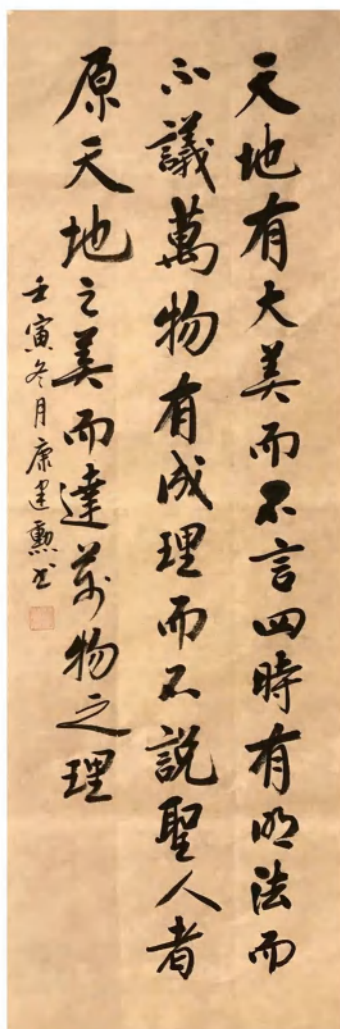 天地有大美而不言四時有明法而
不議萬物有成理而不說聖人者
原天地之美而達萬物之理
壬寅冬月康建勳書